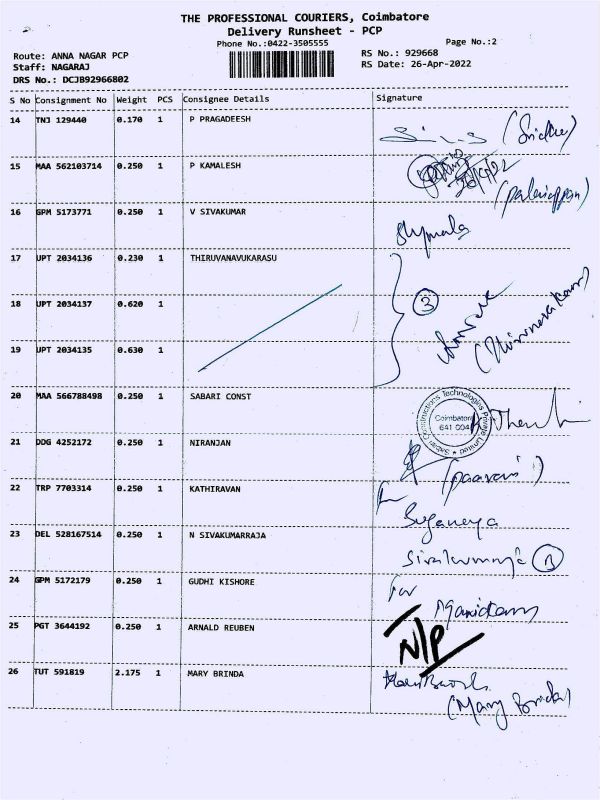 THE PROFESSIONAL COURIERS, Coimbatore
Delivery Runsheet - PCP
Phone No.:0422-3505555
Page No.:2
Route: ANNA NAGAR PCP
RS No.: 929668
Staff: NAGARAJ
RS Date: 26-Apr-2022
DRS No.: DCJB92966802
S No Consignment No Weight PCS Consignee Details Signature
14 TNJ 129440 0.170 1 P PRAGADEESH
15 MAA 562103714 0.250 1 P KAMALESH
26/4/22
(palaniappan)
16 GPM 5173771 0.250 1 V SIVAKUMAR
Shymala
17 UPT 2034136 0.230 1 THIRUVANAVUKARASU
18 UPT 2034137 0.620 1
3
19 UPT 2034135 0.630 1
20 MAA 566788498 0.250 1 SABARI CONST
Sabari Constructions Technologies Private Limited
Coimbatore
641 004
21 DDG 4252172 0.250 1 NIRANJAN
22 TRP 7703314 0.250 1 KATHIRAVAN
Suganeya
23 DEL 528167514 0.250 1 N SIVAKUMARRAJA
24 GPM 5172179 0.250 1 GUDHI KISHORE
For
25 PGT 3644192 0.250 1 ARNALD REUBEN
N/P
26 TUT 591819 2.175 1 MARY BRINDA
(Mary Brinda)